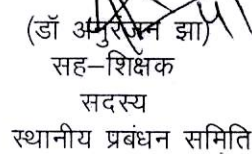 (डॉ अमुरंजन झा)
सह–शिक्षक
सदस्य
स्थानीय प्रबंधन समिति